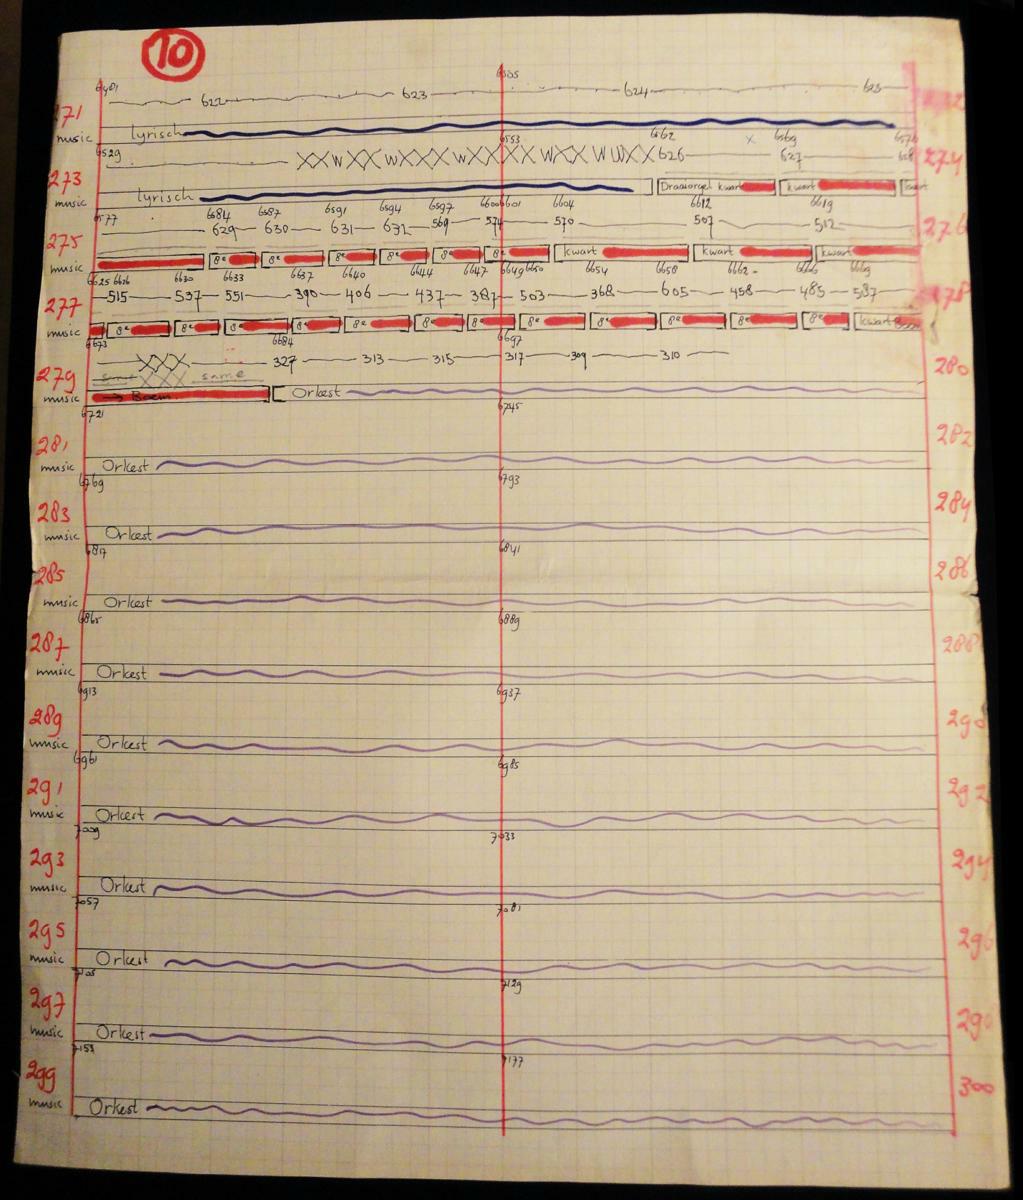 10
6481 6505
622 623 624 625
271
music lyrisch
6529 6553 6562 x 6569 6576
XX W XX W XX W XX XX W XX W W XX 626 627 628 274
273
music lyrisch Draaiorgel kwart kwart kwart
6577 6584 6587 6591 6594 6597 6600 6601 6604 6612 6619
629 630 631 632 569 574 570 507 512 276
275
music 8e 8e 8e 8e 8e 8e kwart kwart kwart
6625 6626 6630 6633 6637 6640 6644 6647 6649 6650 6654 6658 6662 6666 6669
515 537 551 390 406 437 387 503 368 605 458 485 587 278
277
music 8e 8e 8e 8e 8e 8e 8e 8e 8e 8e 8e 8e kwart Boem
6673 6684 6697
XXX 327 313 315 317 309 310 280
279 same XXX same
music → Boem Orkest
6721 6745
281 282
music Orkest
6769 6793
283 284
music Orkest
6817 6841
285 286
music Orkest
6865 6889
287 288
music Orkest
6913 6937
289 290
music Orkest
6961 6985
291 292
music Orkest
7009 7033
293 294
music Orkest
7057 7081
295 296
music Orkest
7105 7129
297 298
music Orkest
7153 7177
299 300
music Orkest